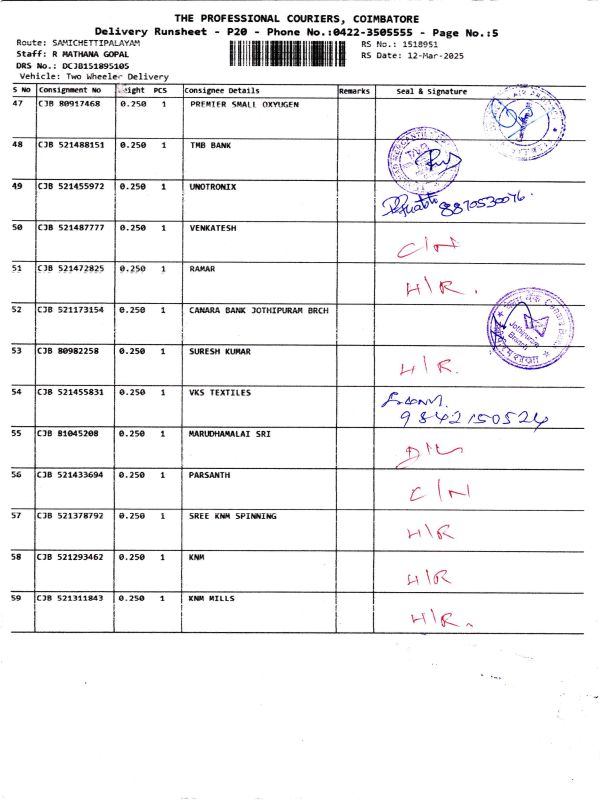 THE PROFESSIONAL COURIERS, COIMBATORE
Delivery Runsheet - P20 - Phone No.:0422-3505555 - Page No.:5
Route: SAMICHETTIPALAYAM
Staff: R MATHANA GOPAL
DRS No.: DCJB151895105
Vehicle: Two Wheeler Delivery
RS No.: 1518951
RS Date: 12-Mar-2025
S No Consignment No Weight PCS Consignee Details Remarks Seal & Signature
47 CJB 80917468 0.250 1 PREMIER SMALL OXYUGEN
48 CJB 521488151 0.250 1 TMB BANK
49 CJB 521455972 0.250 1 UNOTRONIX 8870530076.
50 CJB 521487777 0.250 1 VENKATESH C/N
51 CJB 521472825 0.250 1 RAMAR H/R.
52 CJB 521173154 0.250 1 CANARA BANK JOTHIPURAM BRCH Jothipuram Branch
53 CJB 80982258 0.250 1 SURESH KUMAR H/R.
54 CJB 521455831 0.250 1 VKS TEXTILES
9842150524
55 CJB 81045208 0.250 1 MARUDHAMALAI SRI
56 CJB 521433694 0.250 1 PARSANTH C/N
57 CJB 521378792 0.250 1 SREE KNM SPINNING H/R
58 CJB 521293462 0.250 1 KNM H/R
59 CJB 521311843 0.250 1 KNM MILLS H/R.